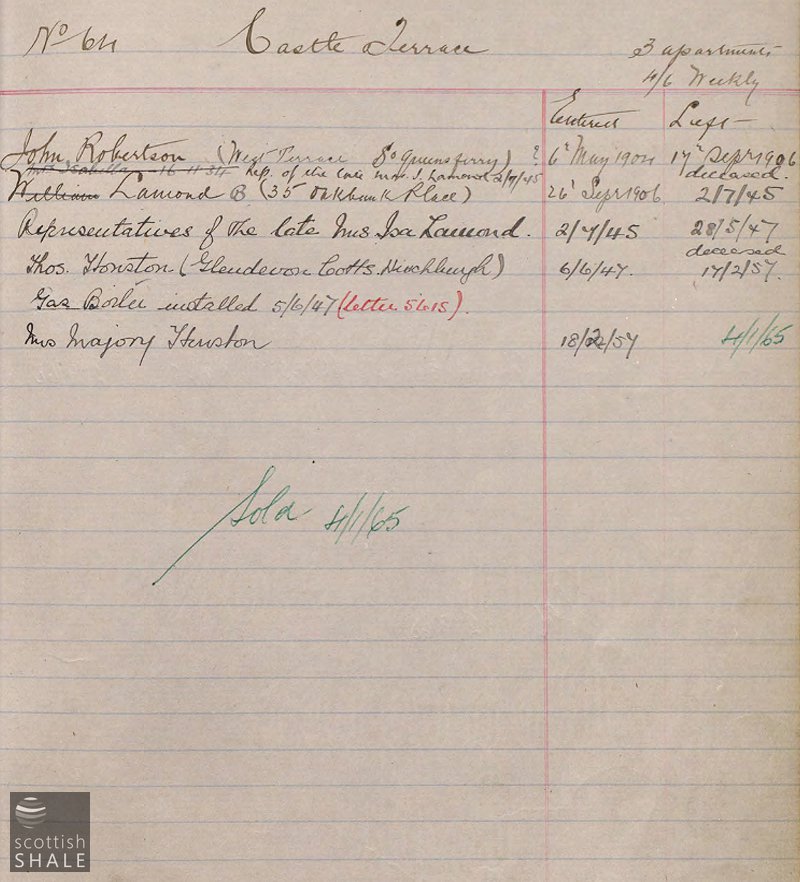 No 64 Castle Terrace 3 apartments
4/6 Weekly
Entered Left
John Robertson (West Terrace So Queensferry) ? 6th May 1904 17th Sept 1906
Mrs Isabella 16-11-34 Rep. of the late Mrs. I. Lamond 2/7/45 deceased.
William Lamond B (35 Oakbank Place) 26th Sept 1906 2/7/45
Representatives of the late Mrs Isa Lamond. 2/7/45 28/5/47
deceased
Thos. Houston (Glendevon Cotts. Winchburgh) 6/6/47. 17/2/57.
Gas Boiler installed 5/6/47 (letter 5615).
Mrs Majory Houston 18/2/57 4/1/65
Sold 4/1/65
scottish
SHALE